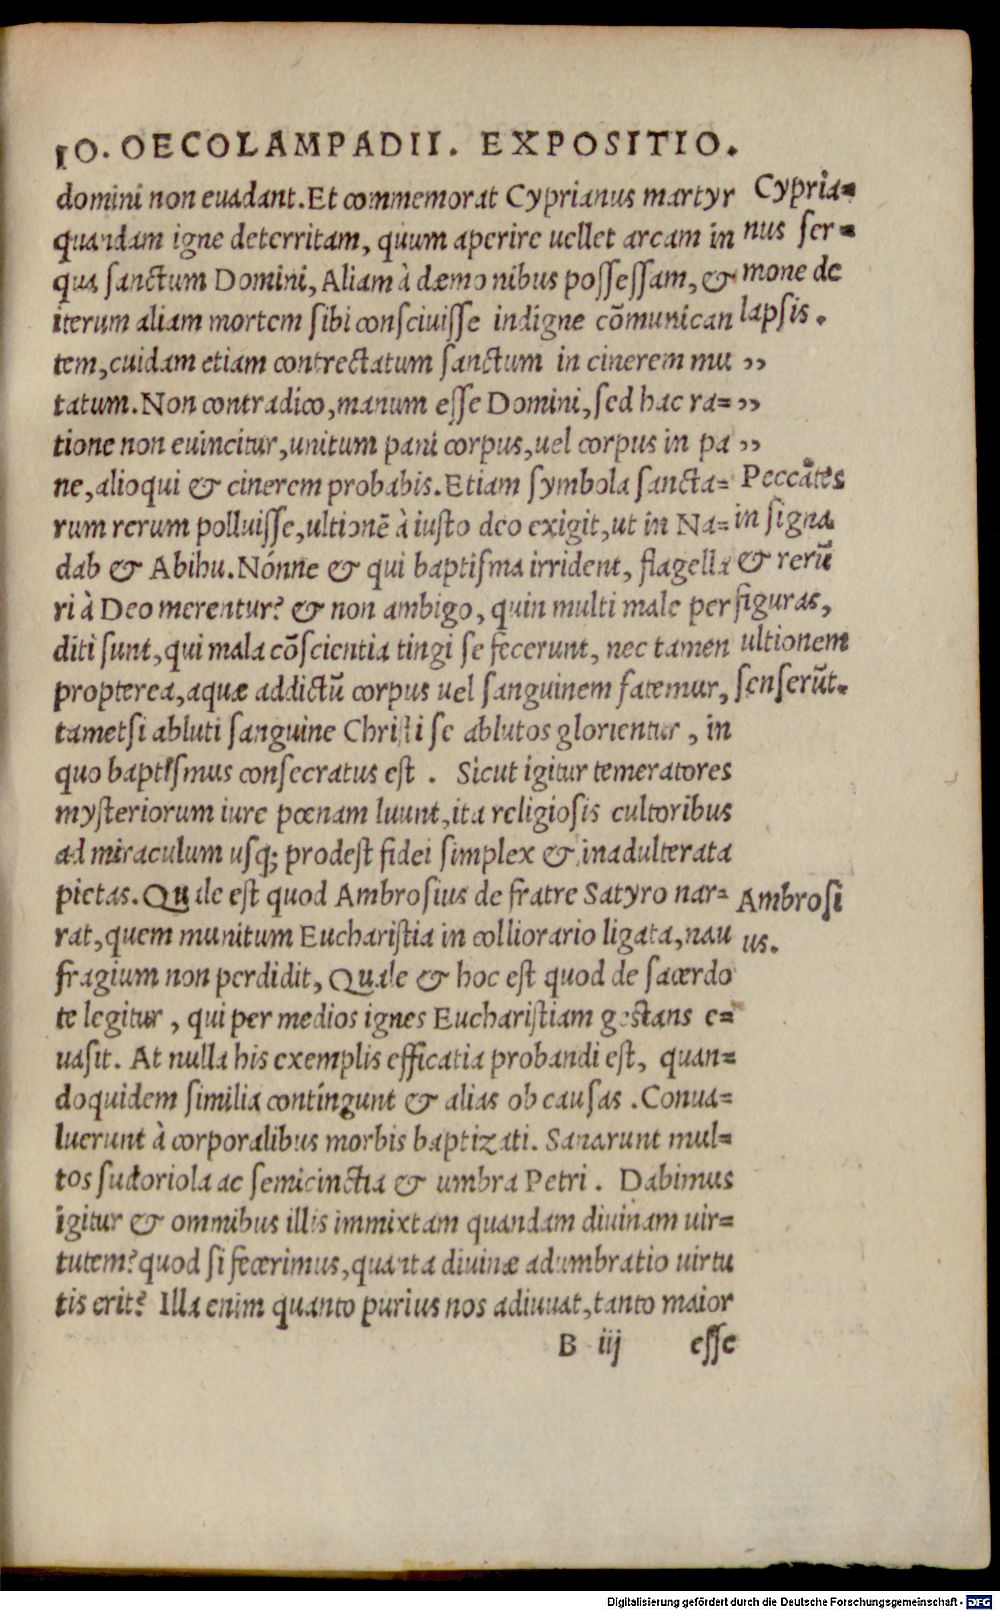 IO. OECOLAMPADII. EXPOSITIO.
domini non euadant. Et commemorat Cyprianus martyr
quandam igne deterritam, quum aperire uellet arcam in
qua sanctum Domini, Aliam à dæmonibus possessam, &
iterum aliam mortem sibi consciuisse indigne cõmunican
tem, cuidam etiam contrectatum sanctum in cinerem mu
tatum. Non contradico, manum esse Domini, sed hac ra=
tione non euincitur, unitum pani corpus, uel corpus in pa
ne, alioqui & cinerem probabis. Etiam symbola sancta=
rum rerum polluisse, ultionẽ à iusto deo exigit, ut in Na=
dab & Abihu. Nónne & qui baptisma irrident, flagella
ri à Deo merentur? & non ambigo, quin multi male per
diti sunt, qui mala cõscientia tingi se fecerunt, nec tamen
propterea, aquæ addictũ corpus uel sanguinem fatemur,
tametsi abluti sanguine Christi se ablutos glorientur, in
quo baptismus consecratus est. Sicut igitur temeratores
mysteriorum iure pœnam luunt, ita religiosis cultoribus
ad miraculum usq; prodest fidei simplex & inadulterata
pietas. Quale est quod Ambrosius de fratre Satyro nar=
rat, quem munitum Eucharistia in colliorario ligata, nau
fragium non perdidit, Quale & hoc est quod de sacerdo
te legitur, qui per medios ignes Eucharistiam gestans e=
uasit. At nulla his exemplis efficatia probandi est, quan=
doquidem similia contíngunt & alias ob causas. Conua=
luerunt à corporalibus morbis baptizati. Sanarunt mul=
tos sudoriola ac semicinctia & umbra Petri. Dabimus
igitur & ommibus illis immixtam quandam diuinam uir=
tutem? quod si fecerimus, quanta diuinæ adumbratio uirtu
tis erit? Illa enim quanto purius nos adiuuat, tanto maior
B iij esse
Cypria=
nus ser=
mone de
lapsis.
,,
,,
,,
Peccãtes
in signa
& rerũ
figuras,
ultionem
senserũt.
Ambrosi
us.
Digitalisierung gefördert durch die Deutsche Forschungsgemeinschaft - DFG